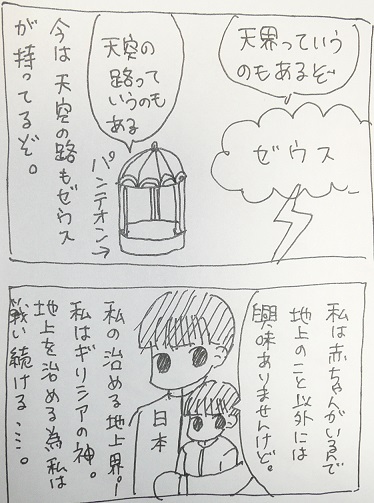 天界っていう
のもあるぞ
ゼウス
天空の
路って
いうのも
ある
パンテオン→
今は天空の路もゼウス
が持ってるぞ。
私は赤ちゃんがいるんで
地上のこと以外には
興味ありませんけど。
日本
私の治める地上界!
私はギリシアの神。
地上を治める為私は
戦い続ける……。